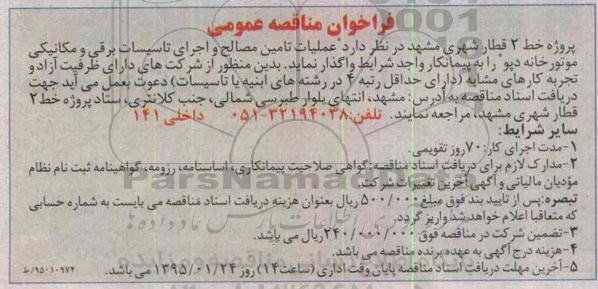 فراخوان مناقصه عمومی
پروژه خط ۲ قطار شهری مشهد در نظر دارد "عملیات تامین مصالح و اجرای تاسیسات برقی و مکانیکی
موتورخانه دپو" را به پیمانکار واجد شرایط واگذار نماید. بدین منظور از شرکت های دارای ظرفیت آزاد و
تجربه کارهای مشابه (دارای حداقل رتبه ۴ در رشته های ابنیه یا تاسیسات) دعوت بعمل می آید جهت
دریافت اسناد مناقصه به آدرس: مشهد، انتهای بلوار طبرسی شمالی، جنب کلانتری، ستاد پروژه خط ۲
قطار شهری مشهد، مراجعه نمایند. تلفن: ۳۲۱۹۴۰۳۸-۰۵۱ داخلی ۱۴۱
سایر شرایط:
۱-مدت اجرای کار: ۷۰روز تقویمی.
۲-مدارک لازم برای دریافت اسناد مناقصه: گواهی صلاحیت پیمانکاری، اساسنامه، رزومه، گواهینامه ثبت نام نظام
مؤدیان مالیاتی و آگهی آخرین تغییرات شرکت.
تبصره: پس از تایید بند فوق مبلغ ۵۰۰/۰۰۰ ریال بعنوان هزینه دریافت اسناد مناقصه می بایست به شماره حسابی
که متعاقبا اعلام خواهد شد واریز گردد.
۳-تضمین شرکت در مناقصه فوق ۲۴۰/۰۰۰/۰۰۰ریال می باشد.
۴-هزینه درج آگهی به عهده برنده مناقصه می باشد.
۵-آخرین مهلت دریافت اسناد مناقصه پایان وقت اداری (ساعت۱۴) روز ۱۳۹۵/۰۱/۲۴ می باشد.
۹۵۰۱۰۹۷۴/ط
ParsNamadData